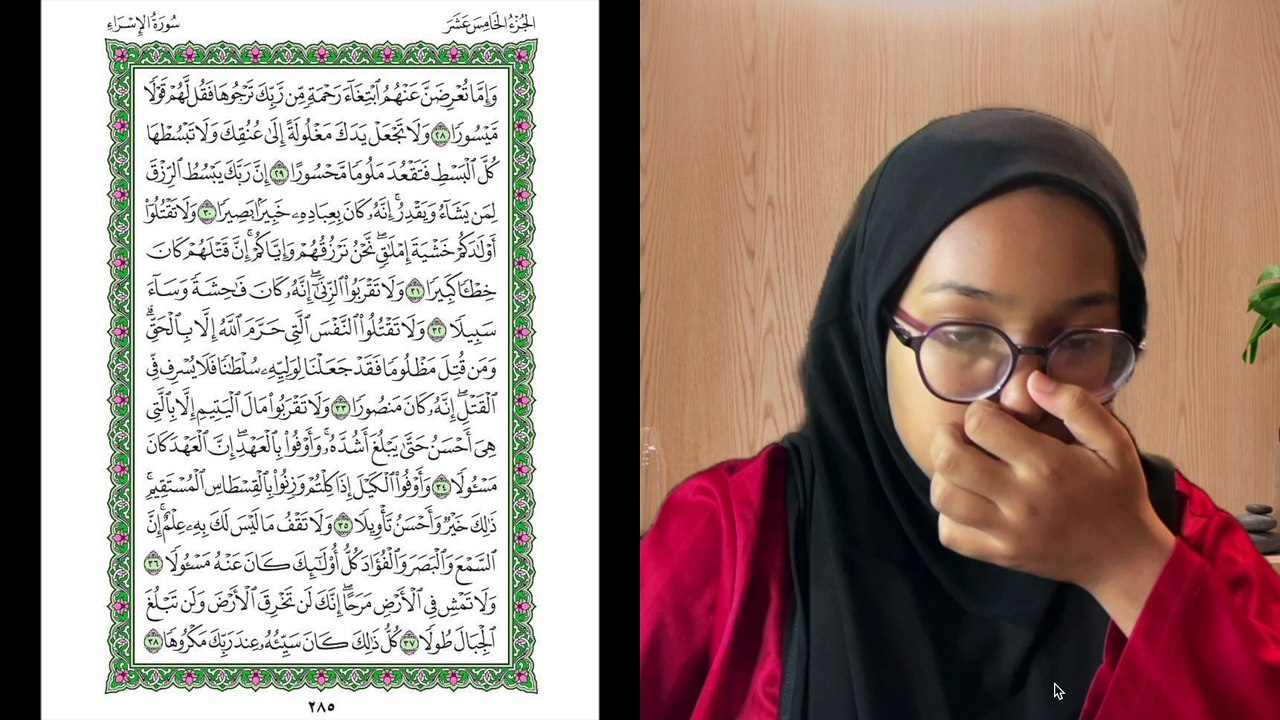 الجُزْءُ الخَامِسَ عَشَرَ
سُورَةُ الإِسْرَاءِ
وَإِمَّا تُعْرِضَنَّ عَنْهُمُ ٱبْتِغَآءَ رَحْمَةٍ مِّن رَّبِّكَ تَرْجُوهَا فَقُل لَّهُمْ قَوْلًا
مَّيْسُورًا ٢٨ وَلَا تَجْعَلْ يَدَكَ مَغْلُولَةً إِلَىٰ عُنُقِكَ وَلَا تَبْسُطْهَا
كُلَّ ٱلْبَسْطِ فَتَقْعُدَ مَلُومًا مَّحْسُورًا ٢٩ إِنَّ رَبَّكَ يَبْسُطُ ٱلرِّزْقَ
لِمَن يَشَآءُ وَيَقْدِرُ ۚ إِنَّهُۥ كَانَ بِعِبَادِهِۦ خَبِيرًۢا بَصِيرًا ٣٠ وَلَا تَقْتُلُوٓا۟
أَوْلَـٰدَكُمْ خَشْيَةَ إِمْلَـٰقٍ ۖ نَّحْنُ نَرْزُقُهُمْ وَإِيَّاكُمْ ۚ إِنَّ قَتْلَهُمْ كَانَ
خِطْـًٔا كَبِيرًا ٣١ وَلَا تَقْرَبُوا۟ ٱلزِّنَىٰٓ ۖ إِنَّهُۥ كَانَ فَـٰحِشَةً وَسَآءَ
سَبِيلًا ٣٢ وَلَا تَقْتُلُوا۟ ٱلنَّفْسَ ٱلَّتِى حَرَّمَ ٱللَّهُ إِلَّا بِٱلْحَقِّ ۗ
وَمَن قُتِلَ مَظْلُومًا فَقَدْ جَعَلْنَا لِوَلِيِّهِۦ سُلْطَـٰنًا فَلَا يُسْرِف فِّى
ٱلْقَتْلِ ۖ إِنَّهُۥ كَانَ مَنصُورًا ٣٣ وَلَا تَقْرَبُوا۟ مَالَ ٱلْيَتِيمِ إِلَّا بِٱلَّتِى
هِىَ أَحْسَنُ حَتَّىٰ يَبْلُغَ أَشُدَّهُۥ ۚ وَأَوْفُوا۟ بِٱلْعَهْدِ ۖ إِنَّ ٱلْعَهْدَ كَانَ
مَسْـُٔولًا ٣٤ وَأَوْفُوا۟ ٱلْكَيْلَ إِذَا كِلْتُمْ وَزِنُوا۟ بِٱلْقِسْطَاسِ ٱلْمُسْتَقِيمِ ۚ
ذَٰلِكَ خَيْرٌ وَأَحْسَنُ تَأْوِيلًا ٣٥ وَلَا تَقْفُ مَا لَيْسَ لَكَ بِهِۦ عِلْمٌ ۚ إِنَّ
ٱلسَّمْعَ وَٱلْبَصَرَ وَٱلْفُؤَادَ كُلُّ أُو۟لَـٰٓئِكَ كَانَ عَنْهُ مَسْـُٔولًا ٣٦
وَلَا تَمْشِ فِى ٱلْأَرْضِ مَرَحًا ۖ إِنَّكَ لَن تَخْرِقَ ٱلْأَرْضَ وَلَن تَبْلُغَ
ٱلْجِبَالَ طُولًا ٣٧ كُلُّ ذَٰلِكَ كَانَ سَيِّئُهُۥ عِندَ رَبِّكَ مَكْرُوهًا ٣٨
٢٨٥